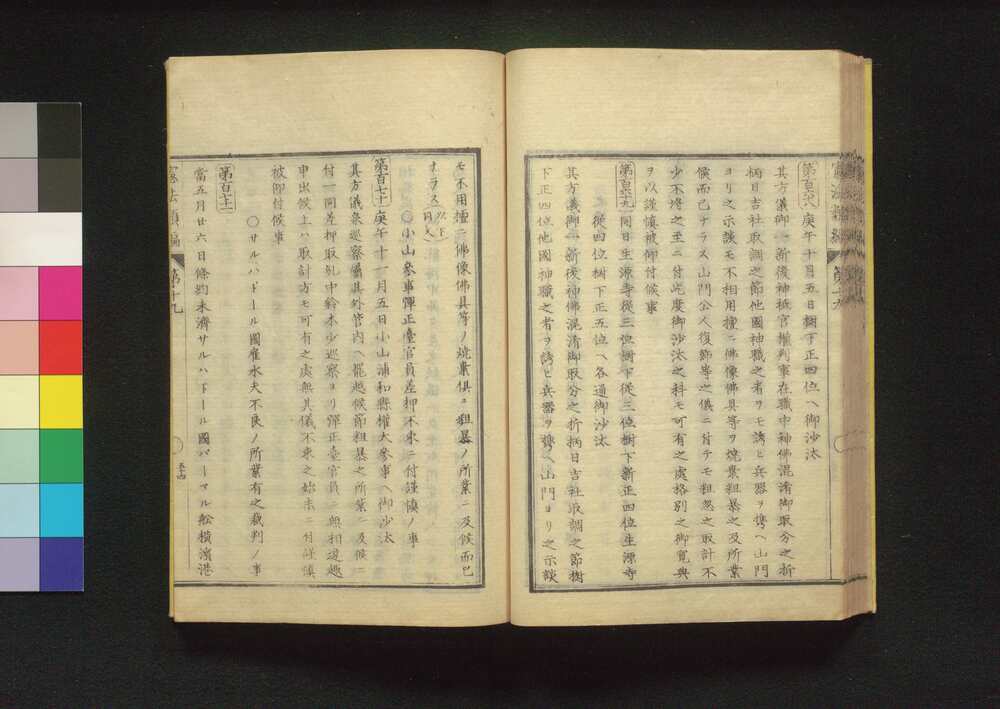 第百六十八 庚午十月五日樹下正四位ヘ御沙汰
其方儀御一新後神祇官權判事在職中神佛混淆御取分之折
柄日吉社取調之節他國神職之者ヲモ誘ヒ兵器ヲ携ヘ山門
ヨリ之示談モ不相用擅ニ佛像佛具等ヲ燒棄粗暴之及所業
候而已ナラス山門公人復飾等之儀ニ付テモ粗忽之取計不
少不埓之至ニ付屹度御沙汰之科モ可有之處格別之御寛典
ヲ以謹愼被仰付候事
第百六十九 同日生源寺從三位樹下從三位樹下新正四位生源寺
從四位樹下正五位ヘ各通御沙汰
其方儀御一新後神佛混淆御取分之折柄日吉社取調之節樹
下正四位他國神職之者ヲ誘ヒ兵器ヲ携ヘ山門ヨリ之示談
モ不用擅ニ佛像佛具等ノ燒棄倶ニ粗暴ノ所業ニ及候而已
ナラス 以下同文
第百七十 ○小山參事彈正臺官員差押不束ニ付謹愼ノ事
庚午十一月五日小山浦和縣權大參事ヘ御沙汰
其方儀彖巡察屬其外管内ヘ罷越候節粗暴之所業ニ及候ニ
付一同差押取糺中鈴木少巡察ヨリ彈正臺官員ニ無相違趣
申出候上ハ取計方モ可有之處無其儀不束之始末ニ付謹愼
被仰付候事
○サルハドール國雇水夫不良ノ所業有之裁判ノ事
第百七十一
當五月廿六日條約未濟サルハトール國パーマル舩橫濱港
憲法類編 第十九
五十四
憲法類編 第十九